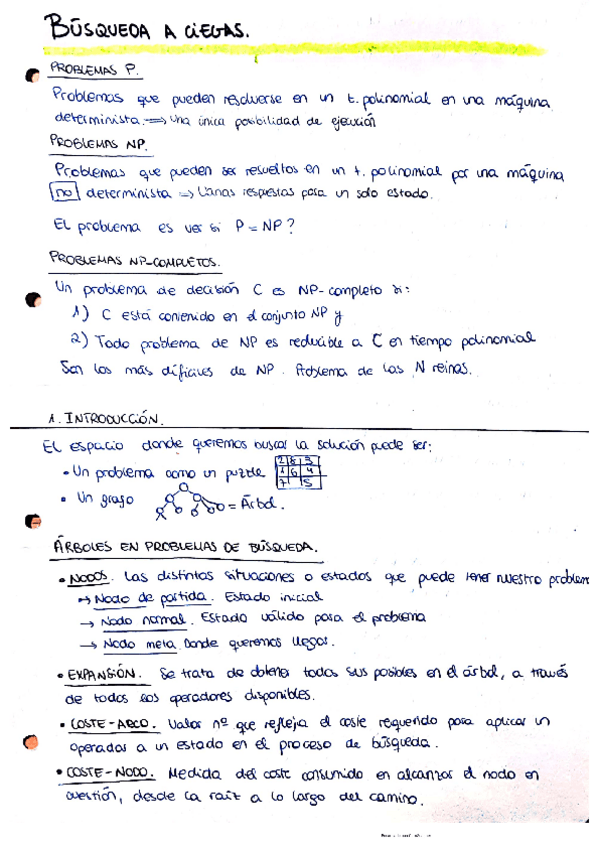 BÚSQUEDA A CIEGAS.
PROBLEMAS P.
Problemas que pueden resolverse en un t. polinomial en una máquina
determinista. => una única posibilidad de ejecución
PROBLEMAS NP.
Problemas que pueden ser resueltos en un t. polinomial por una máquina
no determinista => Varias respuestas para un solo estado.
El problema es ver si P = NP?
PROBLEMAS NP-COMPLETOS.
Un problema de decisión C es NP-completo si:
1) C está contenido en el conjunto NP y
2) Todo problema de NP es reducible a C en tiempo polinomial
Son los más difíciles de NP. Problema de las N reinas.
1. INTRODUCCIÓN.
El espacio donde queremos buscar la solución puede ser:
• Un problema como un puzzle 2 8 3
1 6 4
7 5
• Un grafo = Árbol.
ÁRBOLES EN PROBLEMAS DE BÚSQUEDA.
• NODOS. Las distintas situaciones o estados que puede tener nuestro problem
→ Nodo de partida. Estado inicial
→ Nodo normal. Estado válido para el problema
→ Nodo meta. Donde queremos llegar.
• EXPANSIÓN. Se trata de obtener todos sus posibles en el árbol, a través
de todos los operadores disponibles.
• COSTE-ARCO. Valor nº que refleja el coste requerido para aplicar un
operador a un estado en el proceso de búsqueda.
• COSTE-NODO. Medida del coste consumido en alcanzar el nodo en
cuestión, desde la raíz a lo largo del camino.